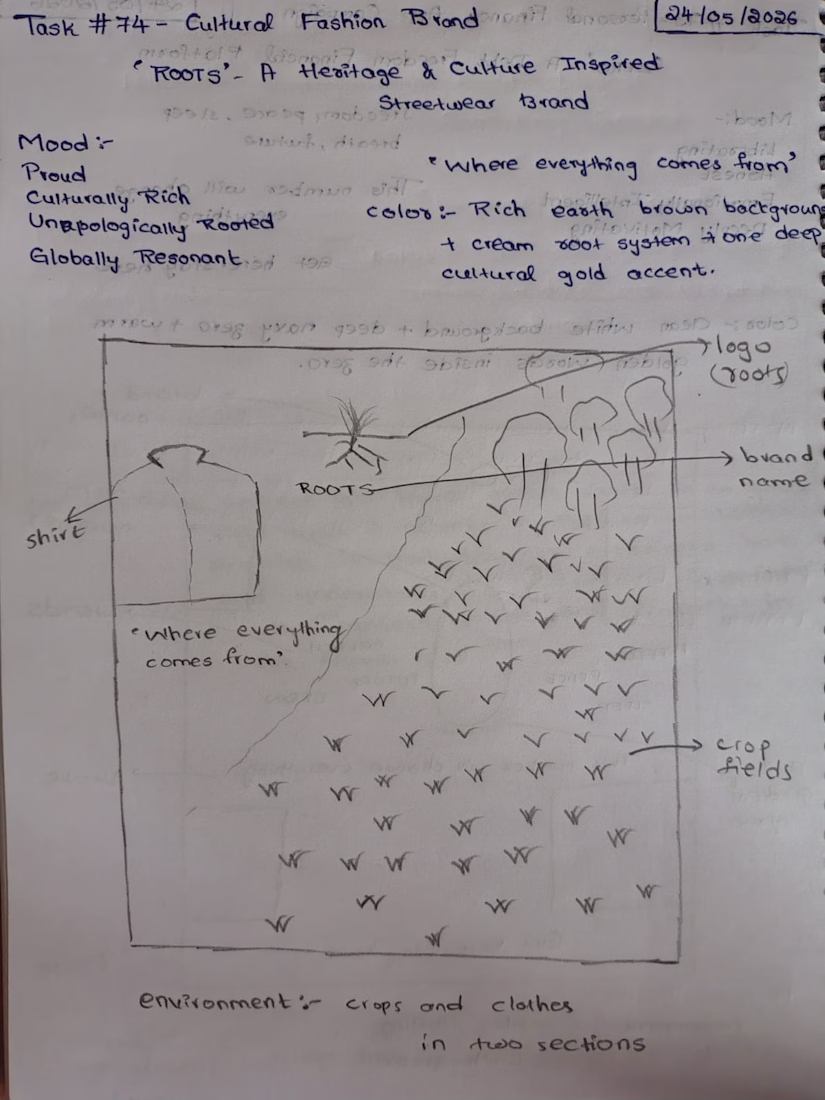 Task #74 - Cultural Fashion Brand
24/05/2026
'ROOTS' - A Heritage & Culture Inspired
Streetwear Brand
Mood :-
Proud
Culturally Rich
Unapologically Rooted
Globally Resonant.
'Where everything comes from'
color :- Rich earth brown backgroun
+ cream root system + one deep
cultural gold accent.
logo
(roots)
brand
name
ROOTS
shirt
'Where everything
comes from'.
crop
fields
environment :- crops and clothes
in two sections